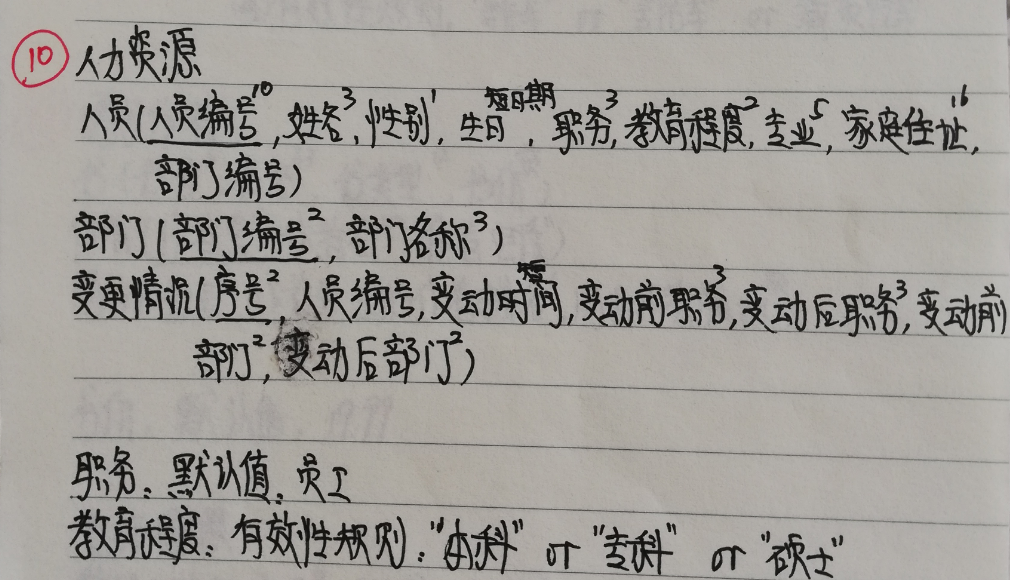 10 人力资源
人员(人员编号10,姓名3,性别1,生日短日期,职务3,教育程度2,专业5,家庭住址16,
部门编号)
部门(部门编号2,部门名称3)
变更情况(序号2,人员编号,变动时间短,变动前职务3,变动后职务3,变动前
部门2,变动后部门2)
职务:默认值:员工
教育程度:有效性规则:"本科" or "专科" or "硕士"